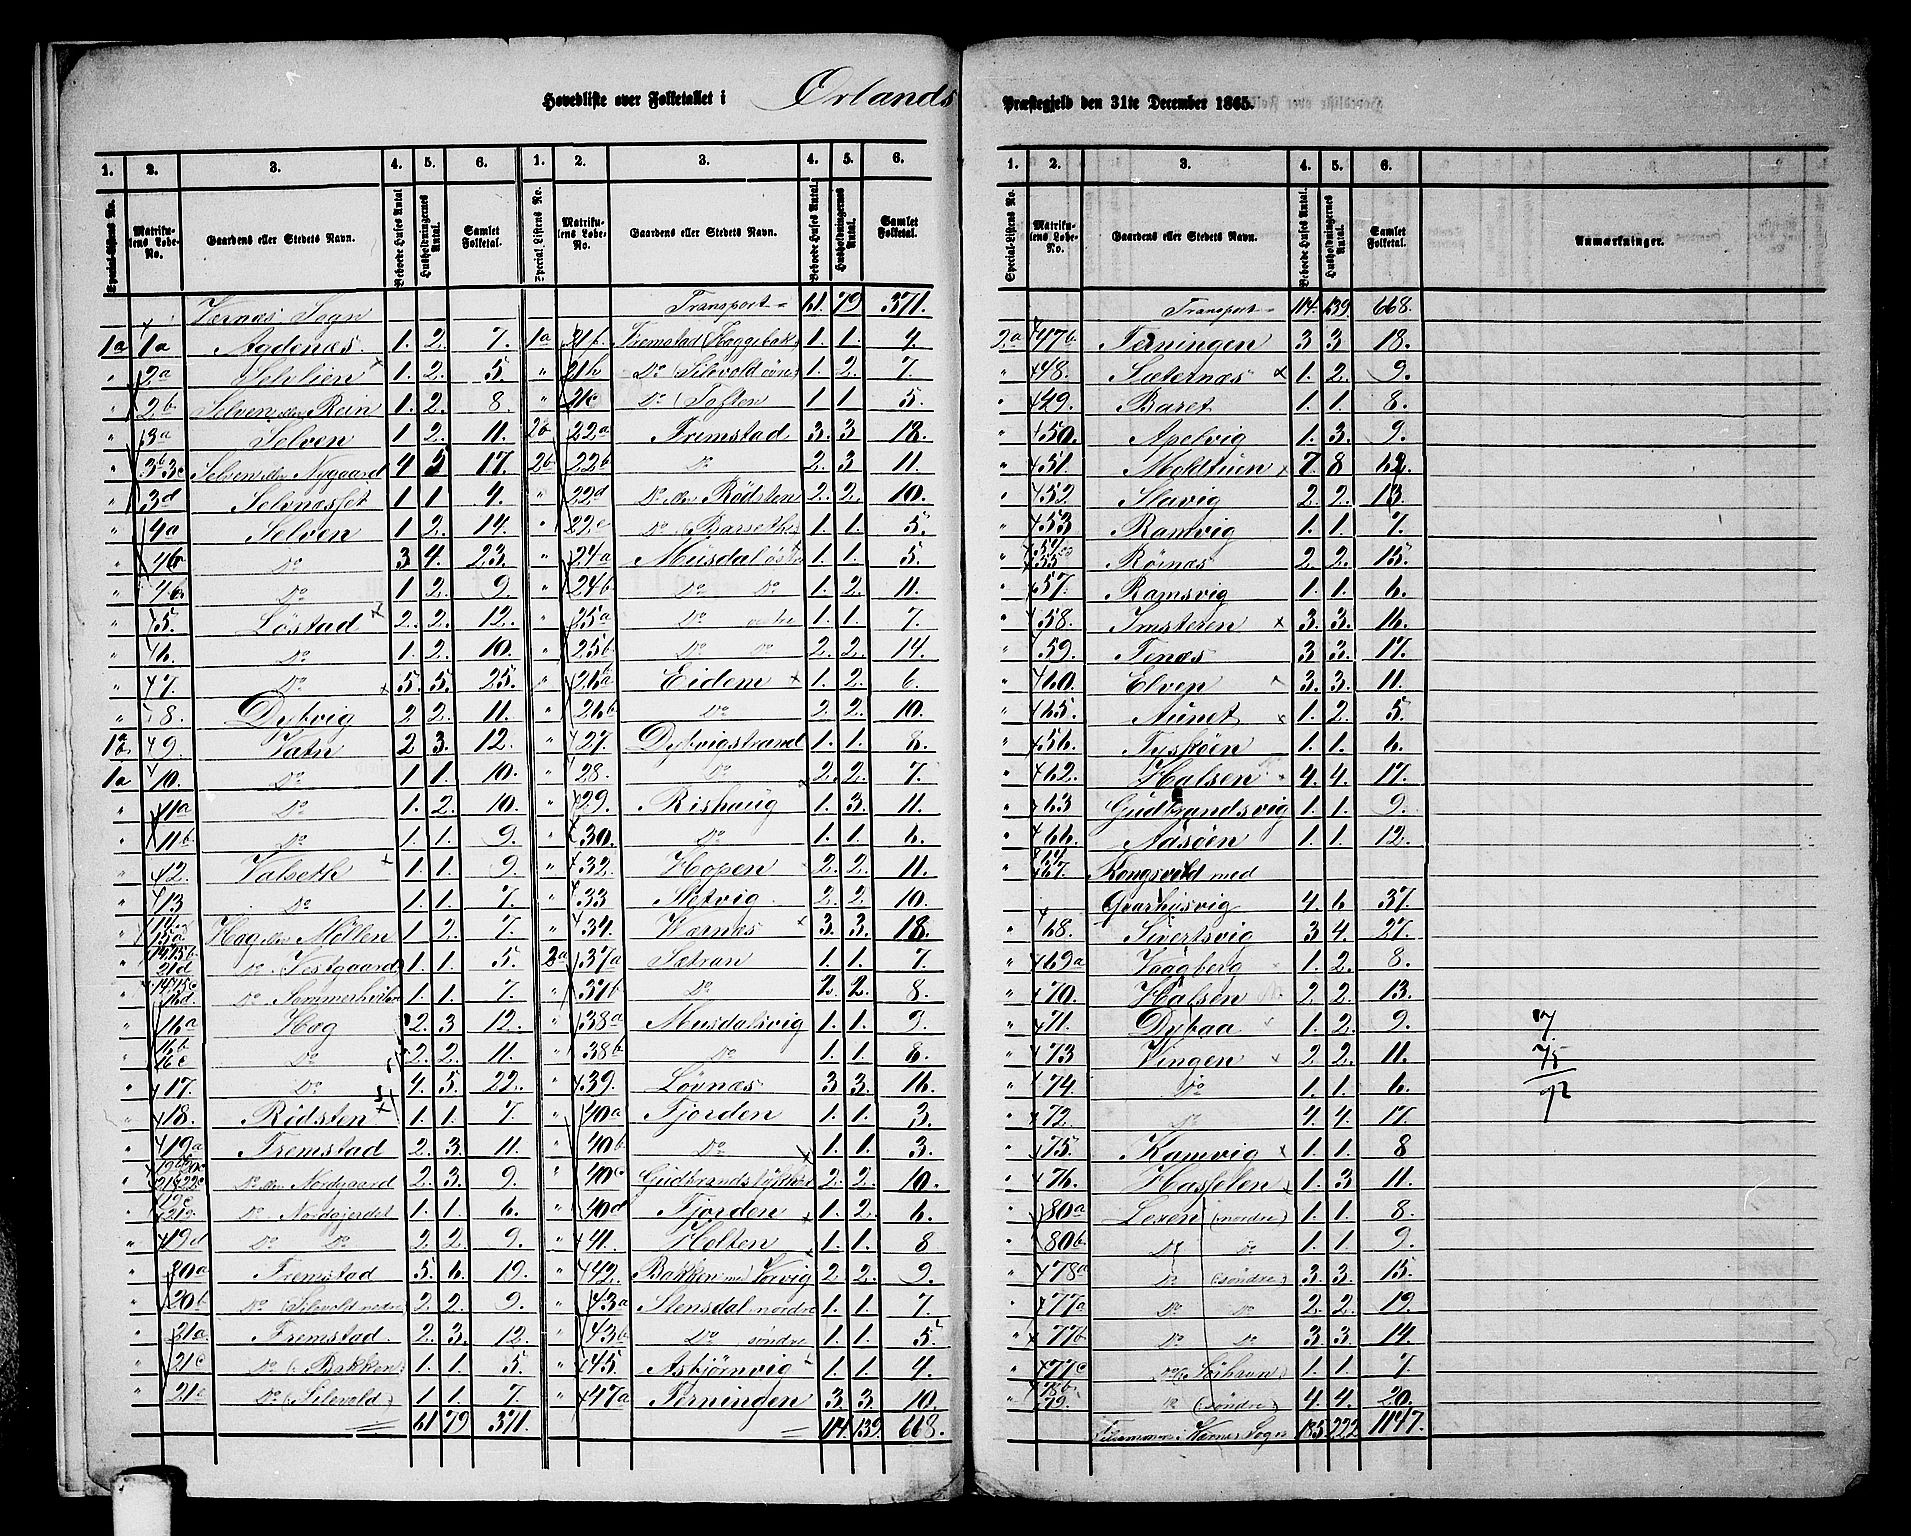 Hovedliste over Folketallet i Ørlands Præstegjeld den 31te December 1865.
1. 2. 3. 4. 5. 6. 1. 2. 3. 4. 5. 6.
Special-Listens No. Matrikulens Løbe-No. Gaardens eller Stedets Navn. Beboede Huses Antal. Husholdningernes Antal. Samlet Folketal. Special-Listens No. Matrikulens Løbe-No. Gaardens eller Stedets Navn. Beboede Huses Antal. Husholdningernes Antal. Samlet Folketal.
Værnæs Sogn
1a 1a Agdenæs 1. 2. 7.
" 2a Selvlien 1. 2. 5.
" 2b Selven eller Rein 1. 2. 8.
" 3a Selven 1 2. 11.
" 3b 3c Selven eller Nygaard 4 5 17.
" 3d Selvnæsset 1 1 4.
" 4a Selven 1 2. 14.
" 4b Do 3 4. 23.
" 4c Do 1 2. 9.
" 5. Løstad 2. 2. 12.
" 6. Do 1. 2. 10.
" 7. Do 5. 5. 25.
" 8. Dybvig 2 2. 11.
1b 9. Vatn 2 3. 12.
1a 10. Do 1 1. 10.
" 11a Do 1. 2. 10.
" 11b Do 1. 1. 9.
" 12. Valseth 1. 1. 9.
" 13 Do 1. 1. 7.
" 14a 15a Hog eller Møllen 1 2. 7.
" 14b 15b 21d Do (Vestgaard) 1. 1. 5.
" 14c 15c 16d Do Sommerhvile 1. 1. 7.
" 16a Hog 2. 3 12.
" 16b 16c Do 2. 2. 11.
" 17. Do 4. 5. 22.
" 18. Ridsten 1. 1. 7.
" 19a Fremstad 2. 3. 11.
" Do eller Nordgaard 2. 3. 9.
" Do Nordgjerdet 1. 1. 6.
" 19d Do Do 2. 2. 9.
" 20a Fremstad 5. 6. 19.
" 20b Do (Silevold nedre 2. 2. 9.
" 21a Fremstad. 2. 3. 12.
" 21c Do (Bakken) 1. 1. 5.
" 21e Do (Silevold) 1. 1. 7.
61 79 371.
Transport 61. 79 371.
1a 21b Fremstad (Haggebak) 1. 1. 4.
" 21h Do (Silevold øvre) 1. 2. 7.
" Do (Toften 1 1 5.
2b 22a Fremstad 3. 3 18.
2b 22b Do 2. 3 11.
" 22d Do eller Rødsten 2. 2. 10.
" 22c Do (Barseth) 1. 1. 5.
" 24a Musdal østre 1. 1. 5.
" 24b Do Do 1. 2 11.
" 25a Do vestre 1. 1. 7.
" 25b Do Do 2. 2. 14.
" 26a Eidem 1. 2. 6.
" 26b Do 2. 2. 10.
" 27. Dybvigstrand 1. 1. 8.
" 28. Do 2. 2. 7.
" 29. Rishaug 1. 3. 11.
" 30. Do 1. 1. 6.
" 32. Hopen 2. 2. 11.
" 33 Stetvig. 2. 2 10.
" 34. Værnæs 3. 3. 18.
2a 37a Sætran 1. 1. 7.
" 37b Do 2. 2. 8.
" 38a Musdalsvig 1. 1. 9.
" 38b Do 1. 1. 8.
" 39. Løvnæs 3. 3. 16.
" 40a Fjorden 1. 1. 3.
" 40b Do 1. 1. 3.
" 40c Gudbrands 2. 2. 10.
" 40d Fjorden 1. 2. 6.
" 41. Holten 1. 1. 8
" 42. Bakken med Vorvig 2 2. 9.
" 43a Stensdal nordre 1. 1. 7.
" 43b Do søndre 1. 1. 5
" 45 Asbjørnvig 1 1. 4.
" 47a Terningen 3. 3. 10.
114. 139. 668.
1. 2. 3. 4. 5. 6.
Special-Listens No. Matrikulens Løbe-No. Gaardens eller Stedets Navn. Beboede Huses Antal. Husholdningernes Antal. Samlet Folketal. Anmærkninger.
Transport 114. 139. 668.
2a 47b Terningen 3 3 18.
" 48. Sæternæs 1. 2. 9.
" 49. Baret 1. 1. 8.
" 50. Apelvig 1. 3. 9.
" 51. Moldtuen 7. 8 62.
" 52. Slavig 2. 2. 13.
" 53. Ramvig 1. 1. 7.
" Rørnæs 2. 2. 15.
" 57. Ramsvig 1. 1. 6.
" 58. Imsteren 3. 3. 16.
" 59. Tenæs 3 3. 17.
" 60. Elven 3. 3. 11.
" 65. Aunet 1. 2. 5.
" 56. Tyskøen 1. 1. 6.
" 62. Halsen 4. 4. 17.
" 63 Gudbrandsvig 1. 1. 9.
" 66. Aasøen 1. 1. 12.
" 67. Kongsvold med
Gvarhusvig 4. 6 37.
" 68. Sivertsvig 3 4. 27.
" 69a Vaagberg 1. 2. 8.
" 70. Halsen 2. 2. 13.
" 71. Dybaa 1. 2. 9.
" 73 Vingen 2. 2. 11.
" 74. Do 1. 1. 6.
" 72. Do 4. 4. 17.
" 75. Kamvig 1. 1. 8
" 76. Hasselen 1. 3 11.
" 80a Lexen (nordre) 1. 1. 8.
" 80b Do Do 1. 1. 9.
" 78a Do (søndre) 3. 3. 15.
" 77a Do Do 2. 2. 19.
" 77b Do Do 3. 3. 14.
" 77c Do 1. 1. 7.
" 78b 79. Do (søndre) 4. 4. 20.
Tilsammen Værnæs Sogn 185 222 1147.
17.
75
92